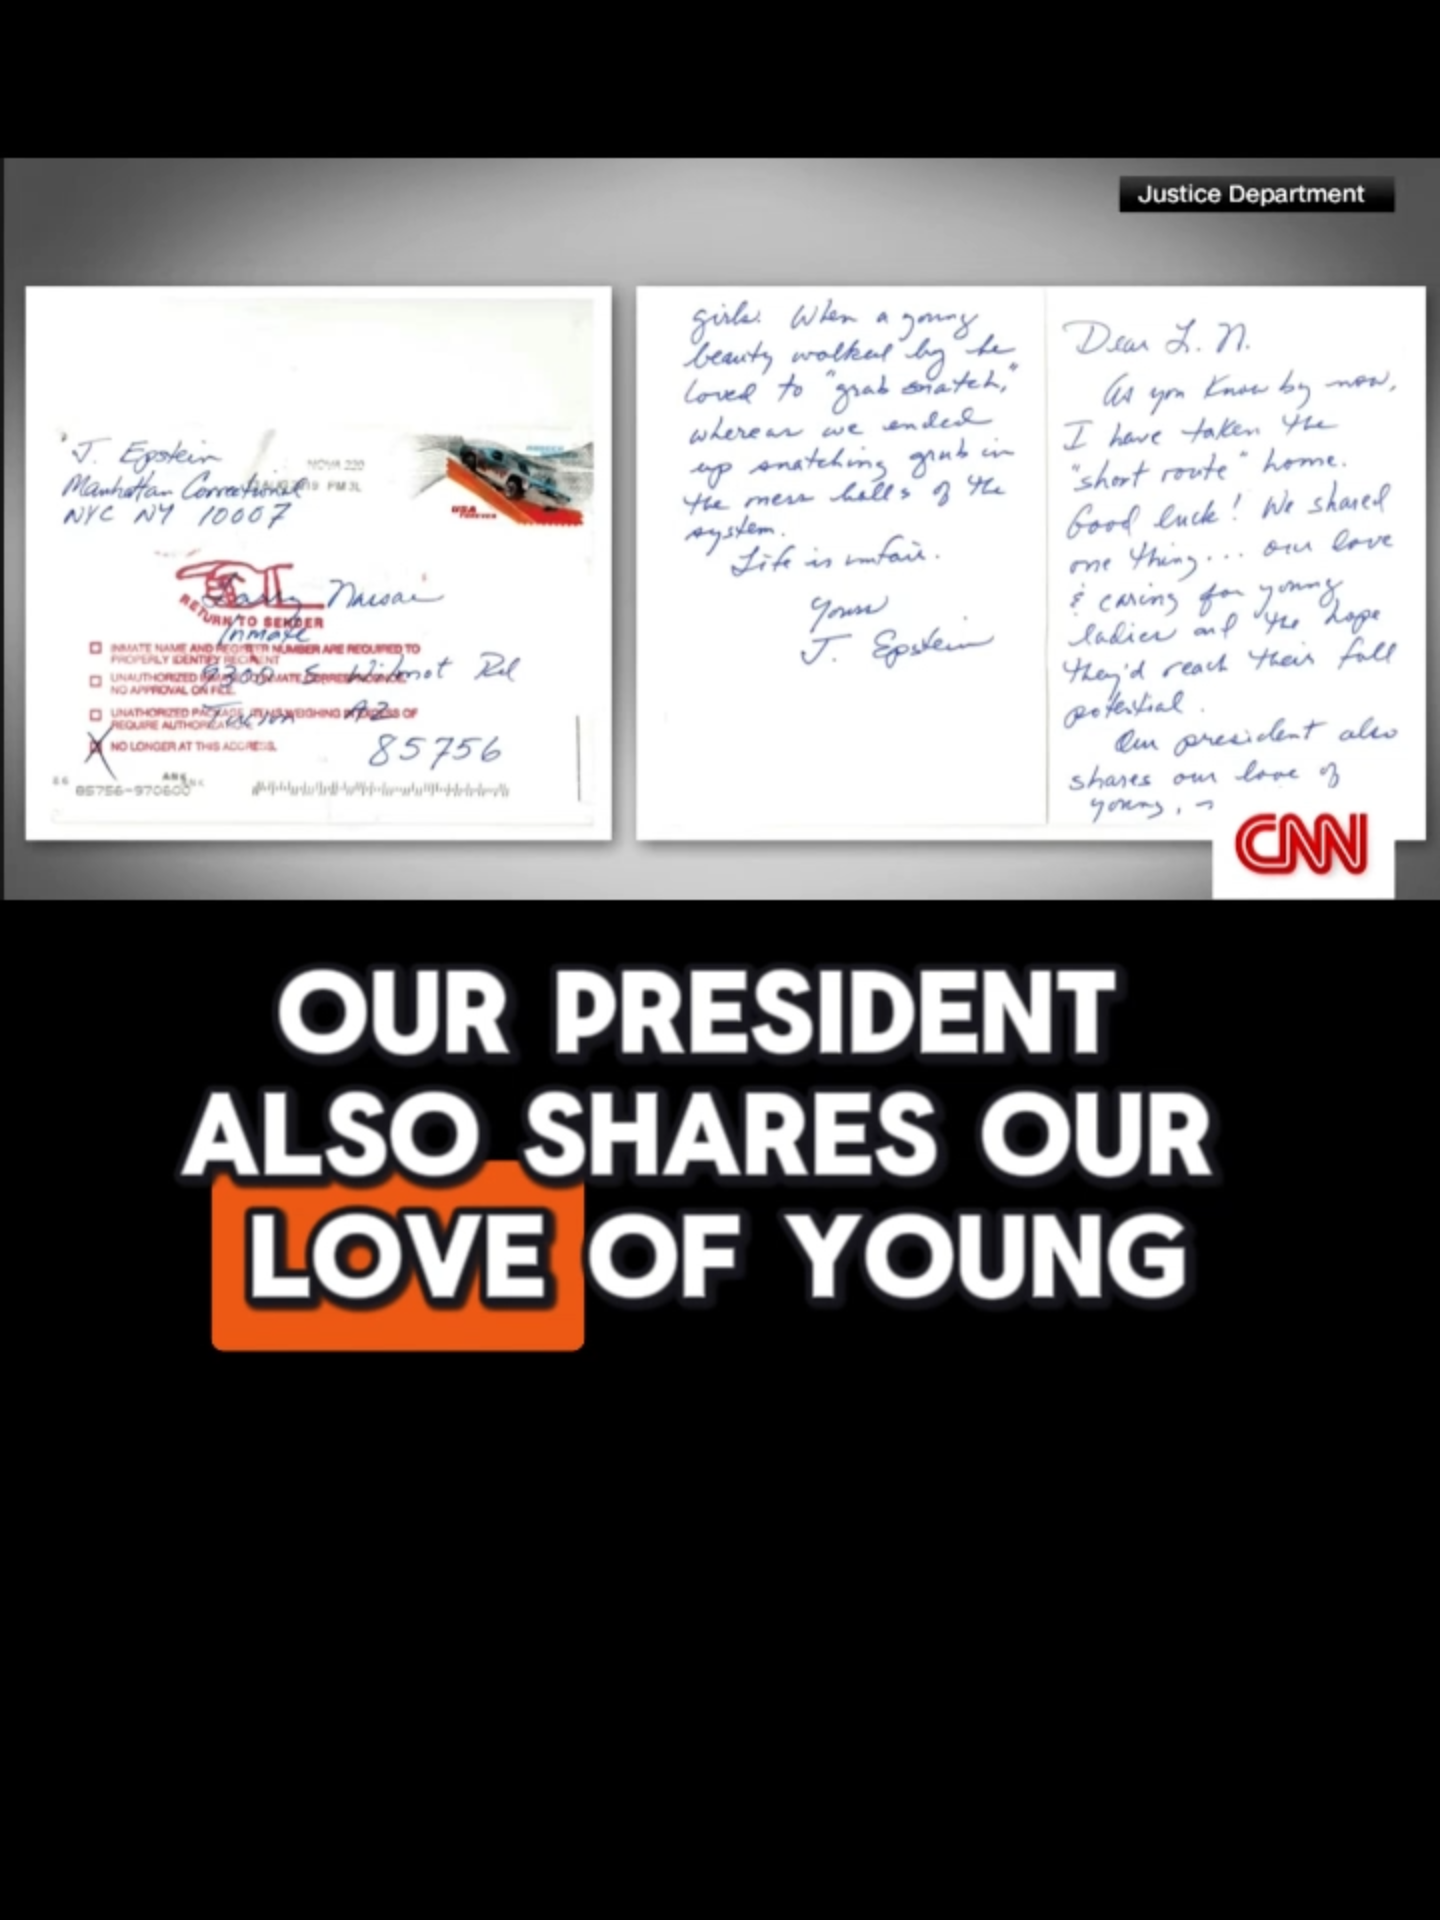 Justice Department
J. Epstein
Manhattan Correctional
NYC NY 10007
NOVA 220
19 PM 3L
USA
FOREVER
Larry Nassar
RETURN TO SENDER
Inmate
INMATE NAME AND REGISTER NUMBER ARE REQUIRED TO
PROPERLY IDENTIFY RECIPIENT
9300 S Wilmot Rd
UNAUTHORIZED
NO APPROVAL ON FILE.
Tucson AZ
WEIGHING
OF
REQUIRE AUTHORIZATION.
X NO LONGER AT THIS ADDRESS.
85756
85756-970600
girls. When a young
beauty walked by he
loved to "grab snatch,"
whereas we ended
up snatching grub in
the mess halls of the
system.
Life is unfair.
Yours
J. Epstein
Dear L. N.
As you know by now,
I have taken the
"short route" home.
Good luck! We shared
one thing... our love
& caring for young
ladies and the hope
they'd reach their full
potential.
Our president also
shares our love of
young,
CNN
OUR PRESIDENT
ALSO SHARES OUR
LOVE OF YOUNG